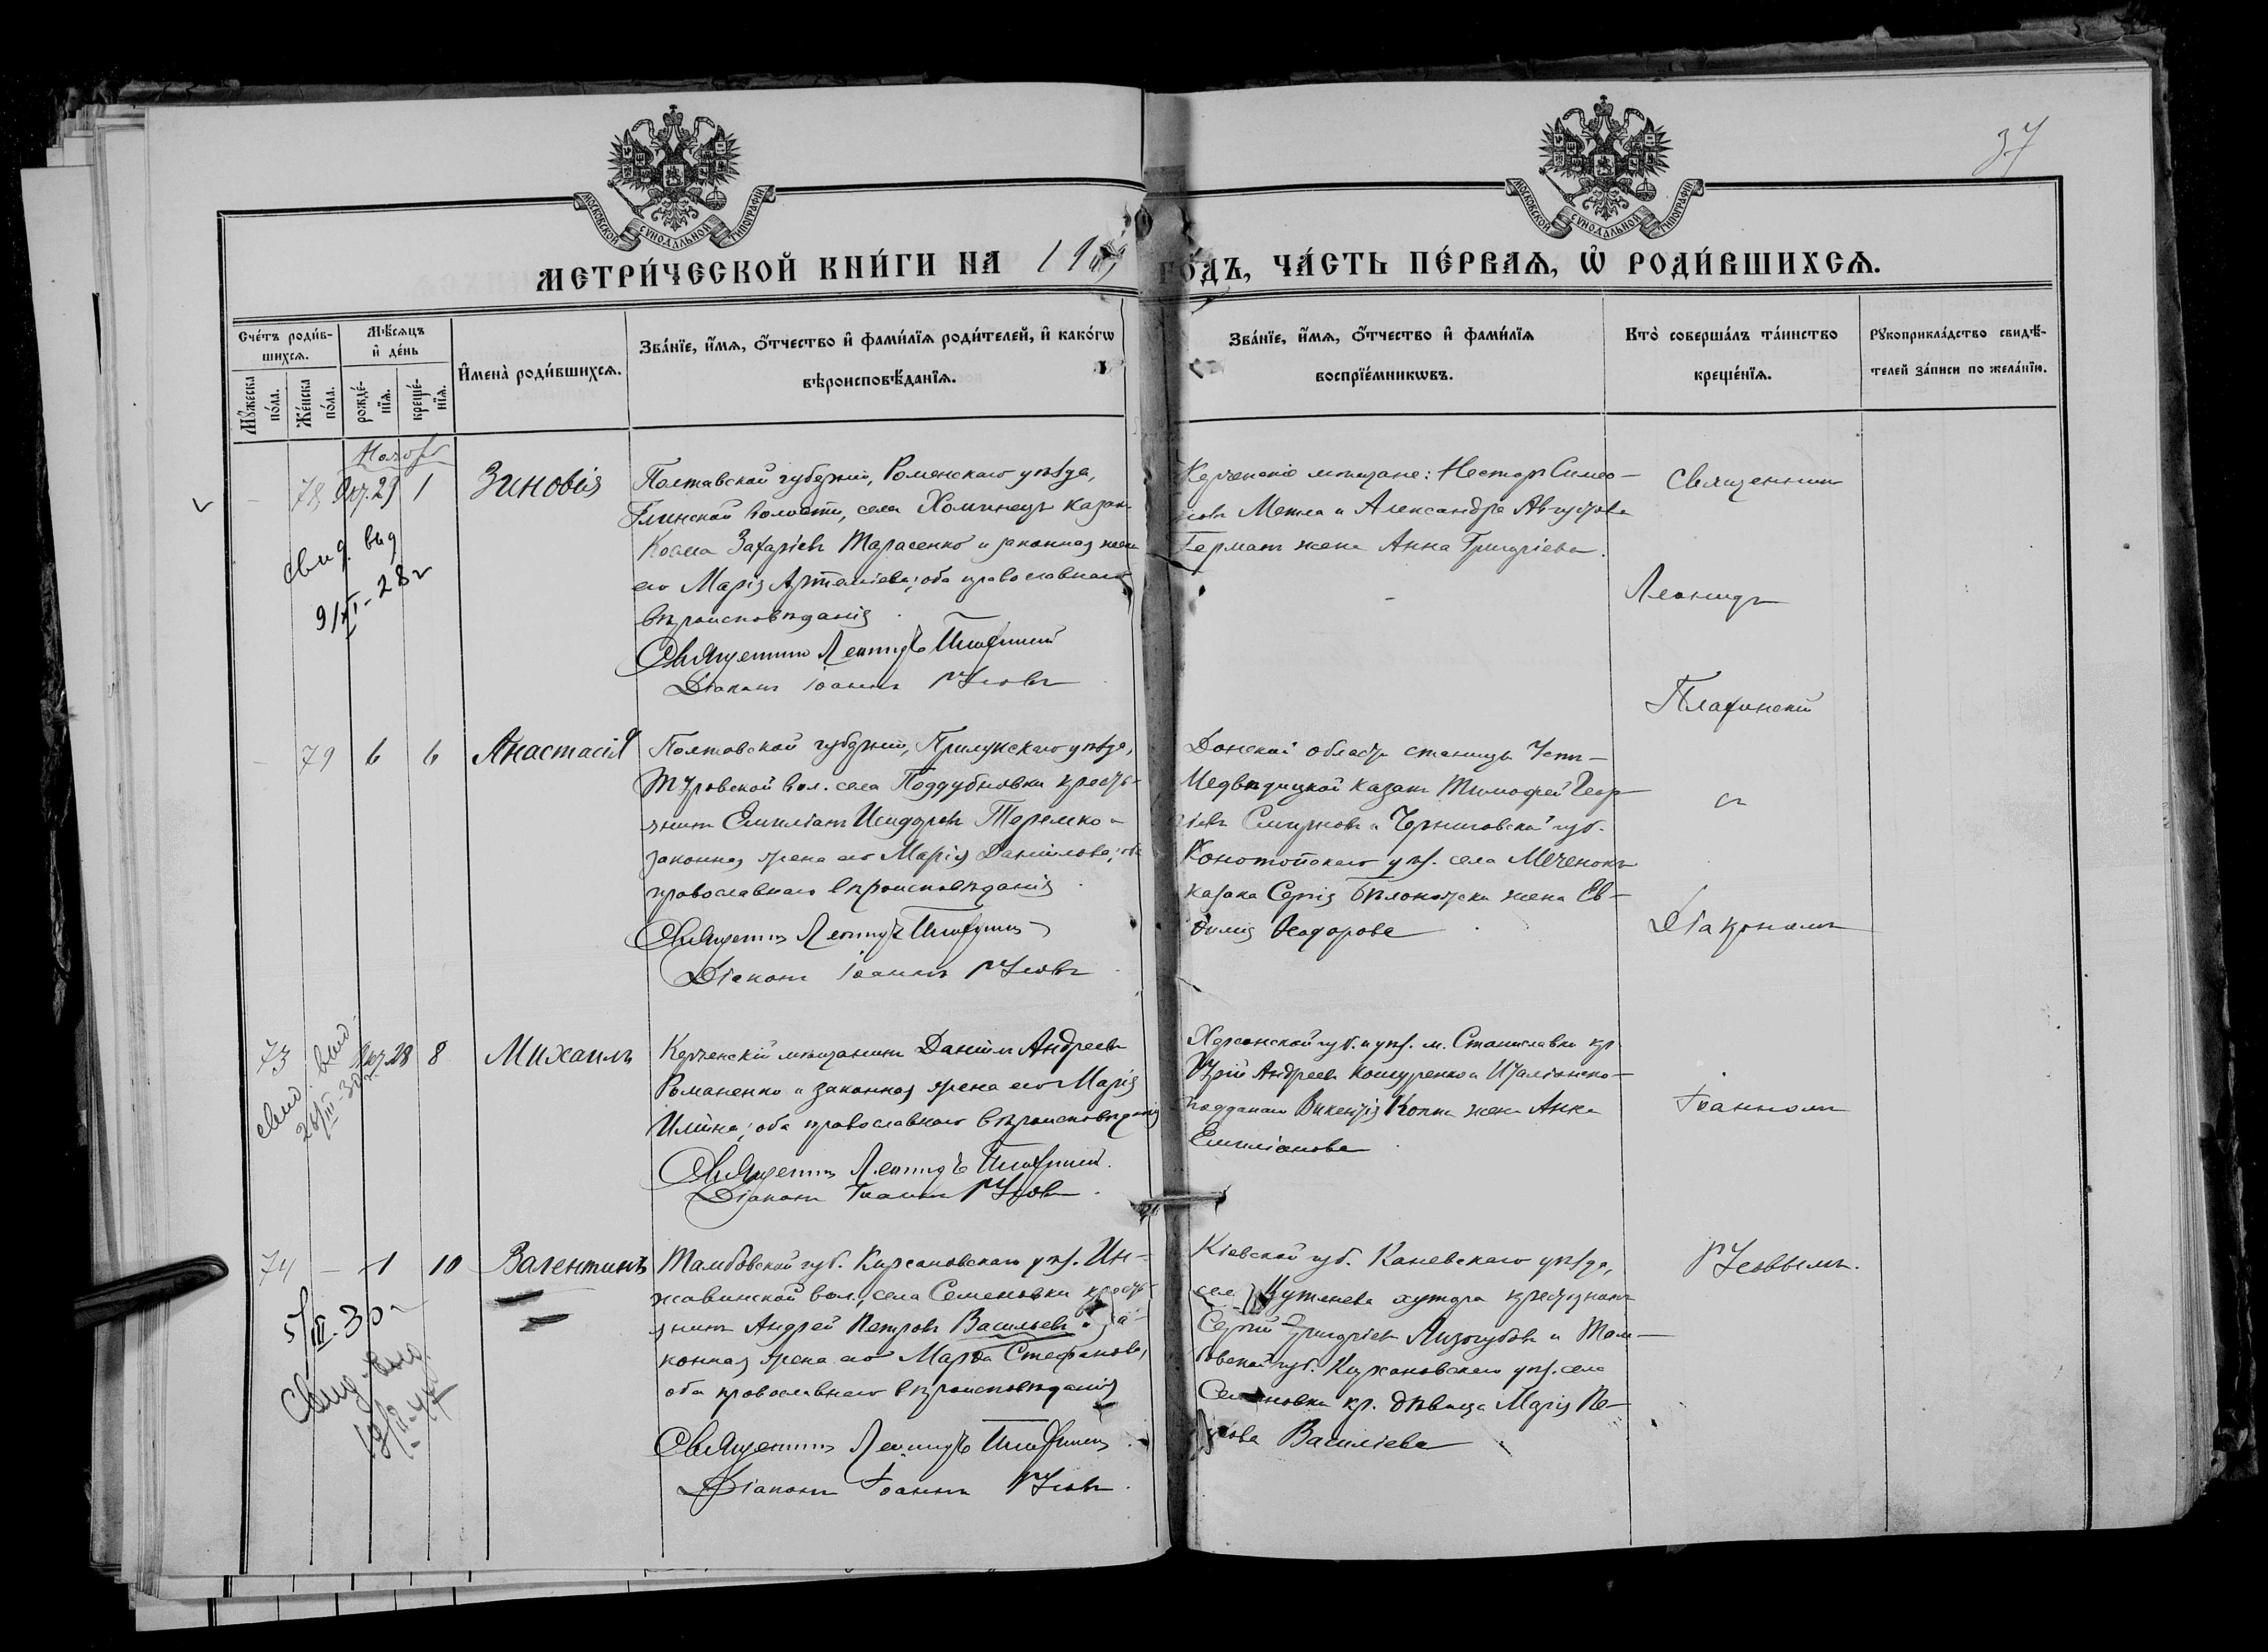 37
МОСКОВСКОЙ СѴНОДАЛЬНОЙ ТИПОГРАФІИ
МОСКОВСКОЙ СѴНОДАЛЬНОЙ ТИПОГРАФІИ
МЕТРИ́ЧЕСКОЙ КНИ́ГИ НА 19 ГОДЪ, ЧА́СТЬ ПЕ́РВАѦ, Ѡ҆ РОДИ́ВШИХСѦ.
Сче́тъ роди́в-
шихсѧ.
Мꙋ́жеска по́ла.
Же́нска по́ла.
Мѣ́сѧцъ и҆ де́нь
рожде́-нїѧ.
креще́-нїѧ.
И҆мена̀ роди́вшихсѧ.
Зва́нїе, и҆́мѧ, ѻ҆́тчество и҆ фами́лїѧ роди́телей, и҆ како́гѡ
вѣроисповѣ́данїѧ.
Зва́нїе, и҆́мѧ, ѻ҆́тчество и҆ фами́лїѧ
воспрїе́мникѡвъ.
Кто̀ соверша́лъ та́инство
креще́нїѧ.
Рꙋкоприкла́дство свидѣ́-
телей за́писи по жела́нїю.
Ноябрь
78 Окт. 29 1 Зиновія
Полтавской губерніи, Роменскаго уѣзда,
Глинской волости, села Хоминецъ казакъ
Косма Захаріевъ Тарасенко и законная жена
его Марія Артеміева; оба православнаго
вѣроисповѣданія
Священникъ Леонидъ
Діаконъ Іоаннъ Усовъ
Керченскіе мѣщане: Несторъ Симео-
новъ Метла и Александра Августова
Германъ жена Анна Григоріева.
Священникъ
Леонидъ
свид. выд
9/XI-28 г
79 6 6 Анастасія
Полтавской губерніи, Прилукскаго уѣзда,
вол. села Поддубновки кресть-
янинъ Емиліанъ Исидоровъ и
законная жена его Марія Даніилова; оба
православнаго вѣроисповѣданія
Священникъ Леонидъ
Діаконъ Іоаннъ Усовъ
Донской области станицы Усть-
Медвѣдицкой казакъ Тимофей Геор-
гіевъ Смирновъ и Черниговской губ.
Конотопскаго уѣз. села
казака Сергія жена Ев-
ѳимія Ѳеодорова
съ
Діакономъ
73 Окт. 28 8 Михаилъ
свид. выд.
26/III-30 г.
Керченскій мѣщанинъ Даніилъ Андреевъ
Романенко и законная жена его Марія
Ильина; оба православнаго вѣроисповѣданія
Священникъ Леонидъ
Діаконъ Іоаннъ Усовъ.
Херсонской губ. и уѣз. м. Станиславки кр.
Андреевъ и Итальянско-
подданаго Викентія жена Анна
Емиліанова
Іоанномъ
74 – 1 10 Валентинъ
5/III-30 г
Свид. выд.
Тамбовской губ. Кирсановскаго уѣз. Ин-
жавинской вол., села Семеновки кресть-
янинъ Андрей Петровъ Васильевъ и за-
конная жена его Марѳа Стефанова,
оба православнаго вѣроисповѣданія
Священникъ Леонидъ
Діаконъ Іоаннъ Усовъ.
Кіевской губ. Каневскаго уѣзда,
хутора крестьянинъ
Сергій Григоріевъ Лизогубовъ и Там-
бовской губ. Кирсановскаго уѣз. села
Семеновки кр. дѣвица Марія Пе-
трова Василіева
Усовымъ.